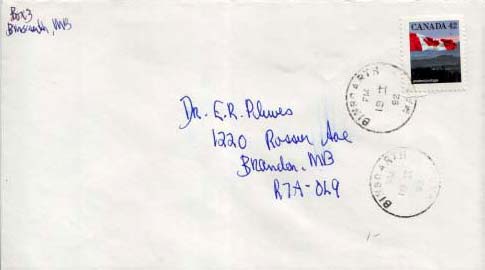 Box 3
Binscarth, MB
CANADA 42
BINSCARTH
PM
19
92
Dr. E.R.
1220 Rosser Ave
Brandon, MB
R7A-0L9
BINSCARTH